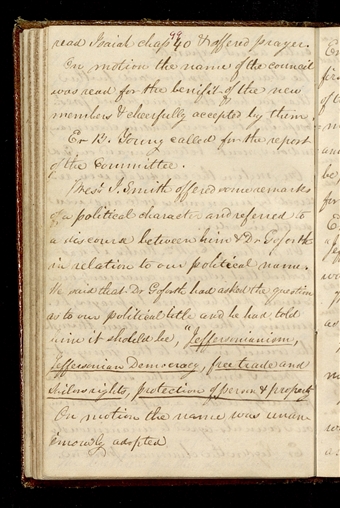 49
read Isaiah chap 40 & offered prayer.
On motion the name of the council
was read for the benifit of the new
members & cheerfully accepted by them.
Er B. Young called for the report
of the Committee.
Prest J. Smith offered some remarks
of a political character and referred to
a discourse between him & Dr Goforth
in relation to our political name.
He said that Dr Goforth had asked the question
as to our political title and he had told
him it should be, "Jeffersonianism,
Jeffersonian Democracy, free trade and
Sailors rights, protection of person & property
On motion the name was unan-
imously adopted